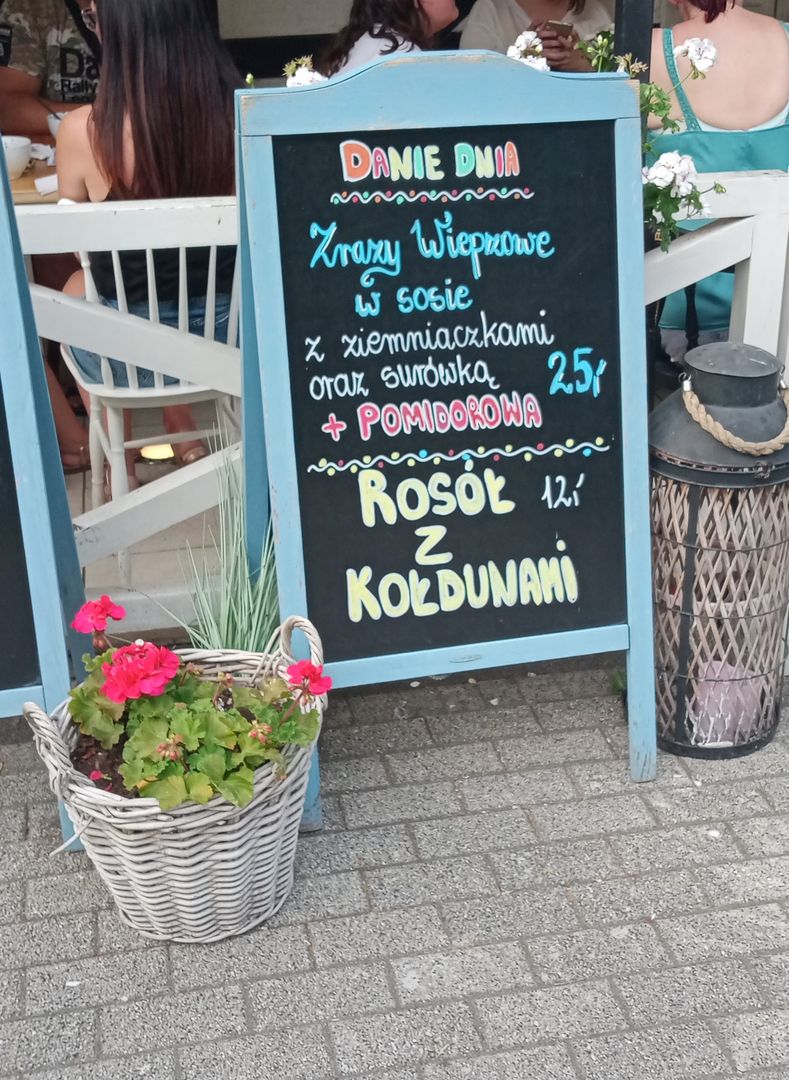 DANIE DNIA
Zrazy Wieprzowe
w sosie
z ziemniaczkami
oraz surówką 25,-
+ POMIDOROWA
ROSÓŁ 12,-
Z
KOŁDUNAMI